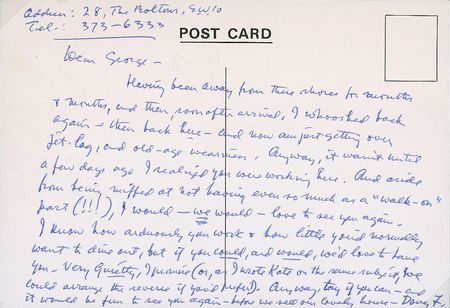 Address: 28, The Boltons, S.W.10
Tel-: 373-6333
POST CARD
Dear George -
Having been away from these shores for months
& months, and then, soon after arrival, I whooshed back
again - then back here - and now am just getting over
Jet-lag, and old-age weariness. Anyway, it wasn't until
a few days ago I realized you were working here. And aside
from being miffed at not having even so much as a "walk-on"
part (!!!), I would - we would - love to see you again.
I know how arduously you work & how little you'd normally
want to dine out, but if you could, and would, we'd love to have
you - Very Quietly, I promise (or, as I wrote Kate on the same subject, we
could arrange the reverse if you'd prefer). Anyway, try if you can - and
it would be fun to see you again - before we sell our lovely house -